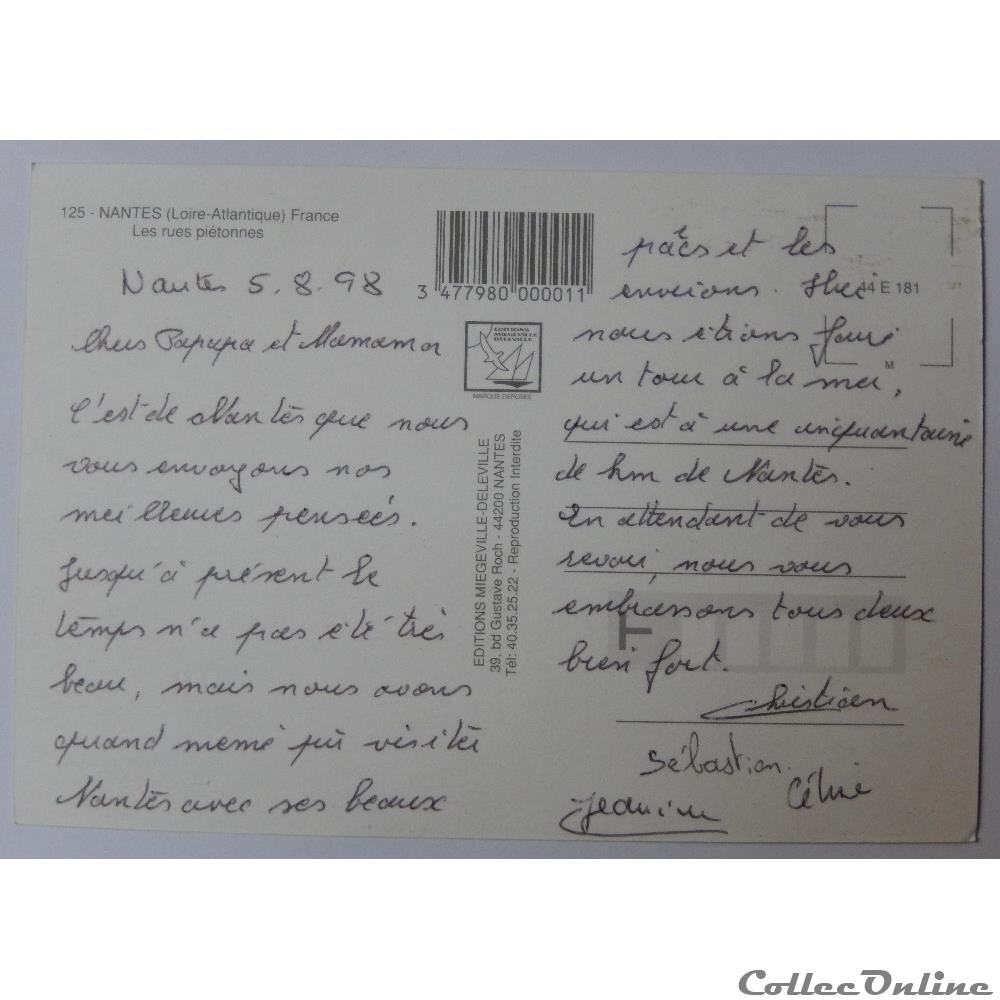 125 - NANTES (Loire-Atlantique) France
Les rues piétonnes
Nantes 5.8.98
Chers Papapa et Mamama
C'est de Nantès que nous
vous envoyons nos
meilleures pensées.
Jusqu'à présent le
temps n'a pas été très
beau, mais nous avons
quand même pû visiter
Nantès avec ses beaux
3 477980 000011
EDITIONS
MIEGEVILLE
DELEVILLE
MARQUE DEPOSEE
EDITIONS MIEGEVILLE-DELEVILLE
39, bd Gustave Roch - 44200 NANTES
Tél: 40.35.25.22 - Reproduction Interdite
44 E 181
M
F
parcs et les
environs. Hier
nous étions faire
un tour à la mer,
qui est à une cinquantaine
de km de Nantès.
En attendant de vous
revoir, nous vous
embrassons tous deux
bien fort.
Christian
Sébastien
Céline
Jeanine
CollecOnline